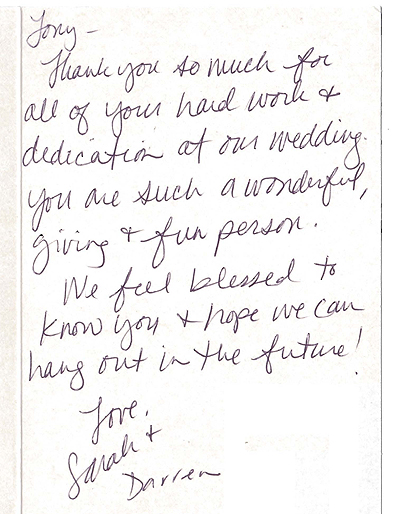 Tony -
Thank you so much for
all of your hard work &
dedication at our wedding.
You are such a wonderful,
giving & fun person.
We feel blessed to
know you & hope we can
hang out in the future!
Love,
Sarah &
Darren